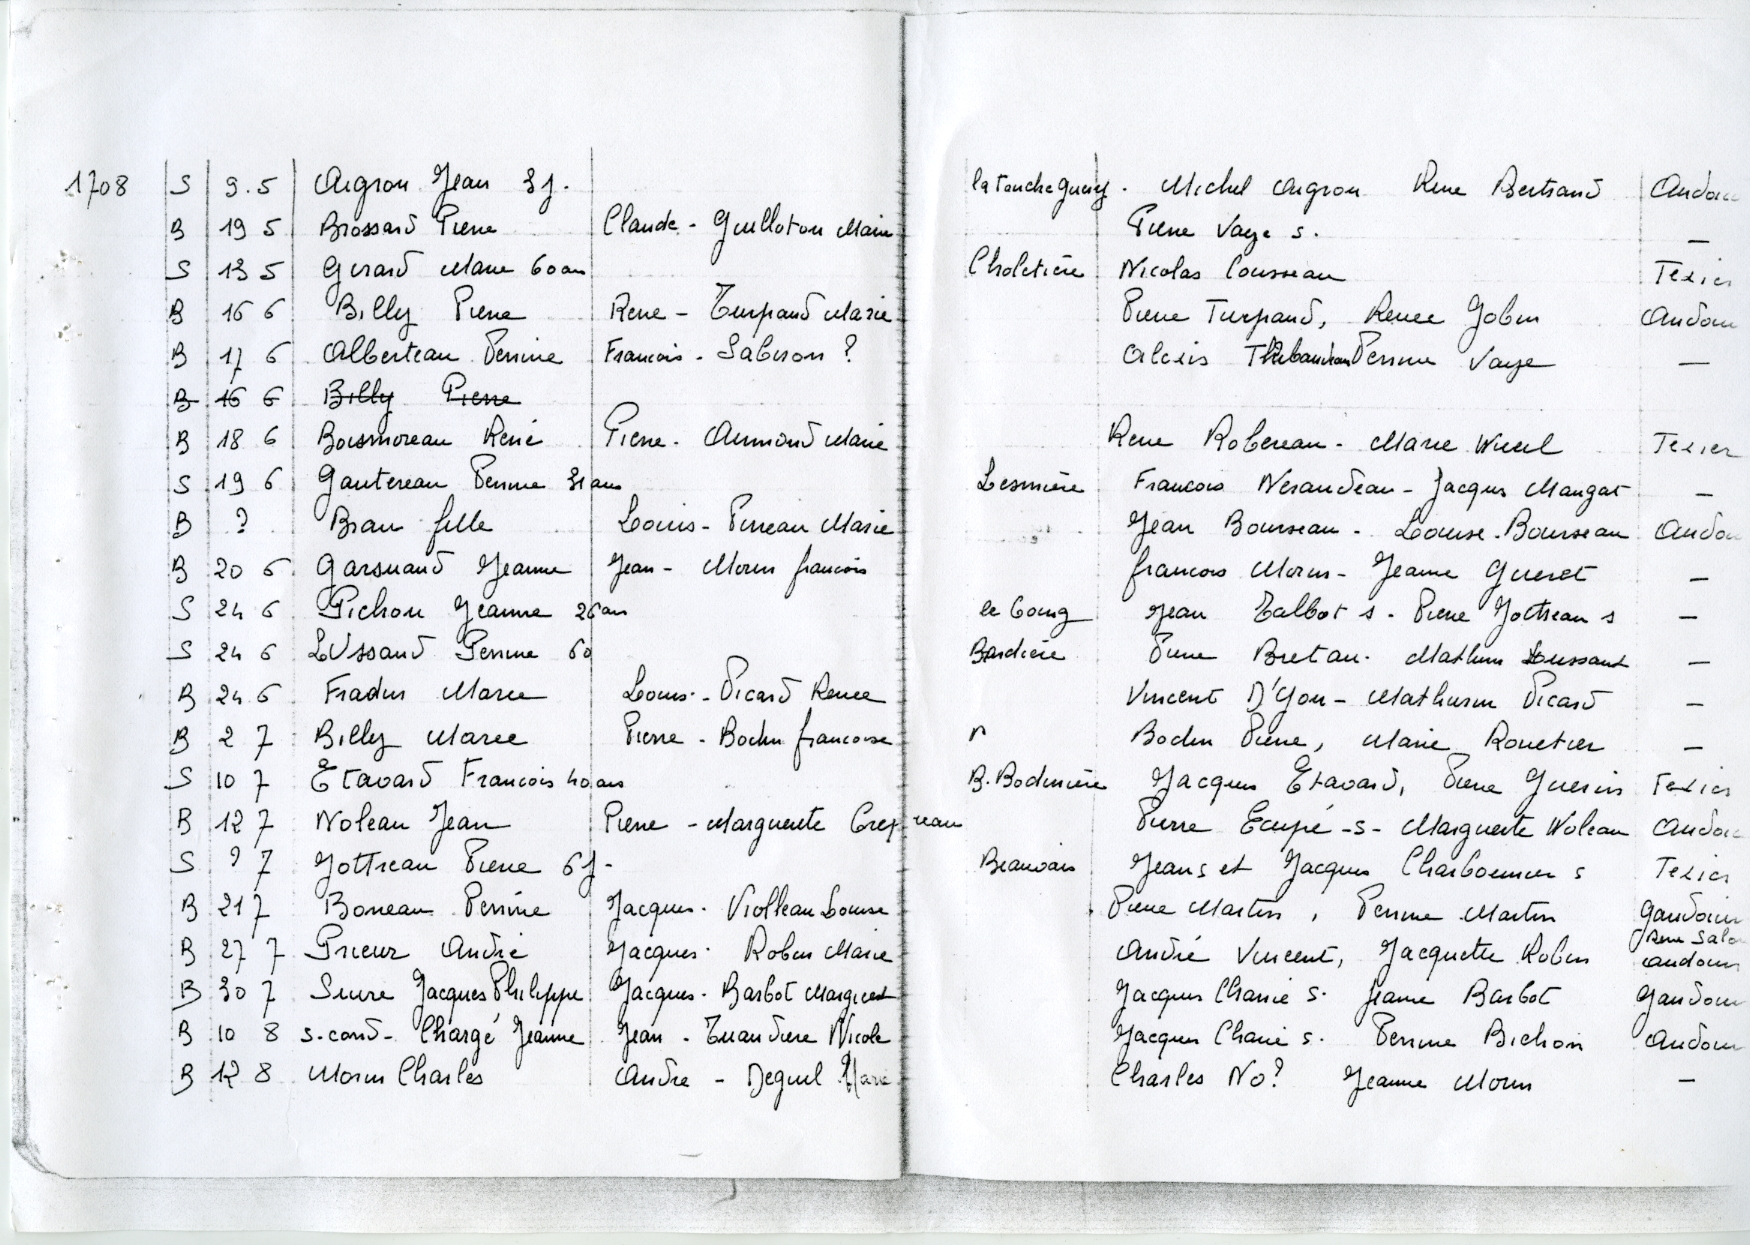 1708 S 9.5 Aigron Jean 3 j. la Touche Guerry. Michel Aigron Rene Bertrand Andoin
B 19 5 Brossard Pierre Claude - Guilloton Marie Pierre Vaye s. —
S 13 5 Girard Marie 60 an Choletière Nicolas Cousseau Texier
B 16 6 Billy Pierre Rene - Turpaud Marie Pierre Turpaud, Renee Jobin Andoin
B 17 6 Alberteau Perrine Francois - Sabiron ? Alexis Thibaudeau Perrine Vaye —
B 16 6 Billy Pierre
B 18 6 Boismoreau René Pierre - Aumond Marie Rene Robereau - Marie Texier
S 19 6 Gautereau Perrine 31 ans Lesnière Francois Neraudeau - Jacques Maugat —
B ? Brau fille Louis - Perreau Marie Jean Bourseau - Louise Bourseau Andou
B 20 6 Garsuaud Jeanne Jean - Morin francois francois Morin - Jeanne Gueret —
S 24 6 Pichon Jeanne 26 ans le Bourg Jean Talbot s - Pierre Jottreau s —
S 24 6 LUssaud Perrine 60 Bardière Pierre Bretau - Mathurin Lussaud —
B 24 6 Fradin Marie Louis - Picard Renee Vincent D'Yon - Mathurin Picard —
B 2 7 Billy Marie Pierre - Bodin francoise Bodin Pierre, Marie Rouetier —
S 10 7 Etavard Francois 40 ans B. Bodinière Jacques Etavard, Pierre Guerin Texier
B 12 7 Noleau Jean Pierre - Marguerite Crepreau Pierre Ecupé - s - Marguerite Noleau Andoi
S ? 7 Jottreau Pierre 6 j - Beauvais Jean s et Jacques Charbonnier s Texier
B 21 7 Boneau Perrine Jacques - Violleau Louise Pierre Martin, Perrine Martin Gaudoin
B 27 7 Prieur André Jacques - Robin Marie André Vincent, Jacquette Robin Rene Salo Andouin
B 30 7 Suire Jacques Philippe Jacques - Barbot Marguerit Jacques Charrié s. Jeanne Barbot Gaudoin
B 10 8 s.cond - Chargé Jeanne Jean - Tuaudiere Nicole Jacques Charié s. Perrine Bichon Andoin
B 12 8 Morin Charles Andre - Deguil Marie Charles No ? Jeanne Morin —